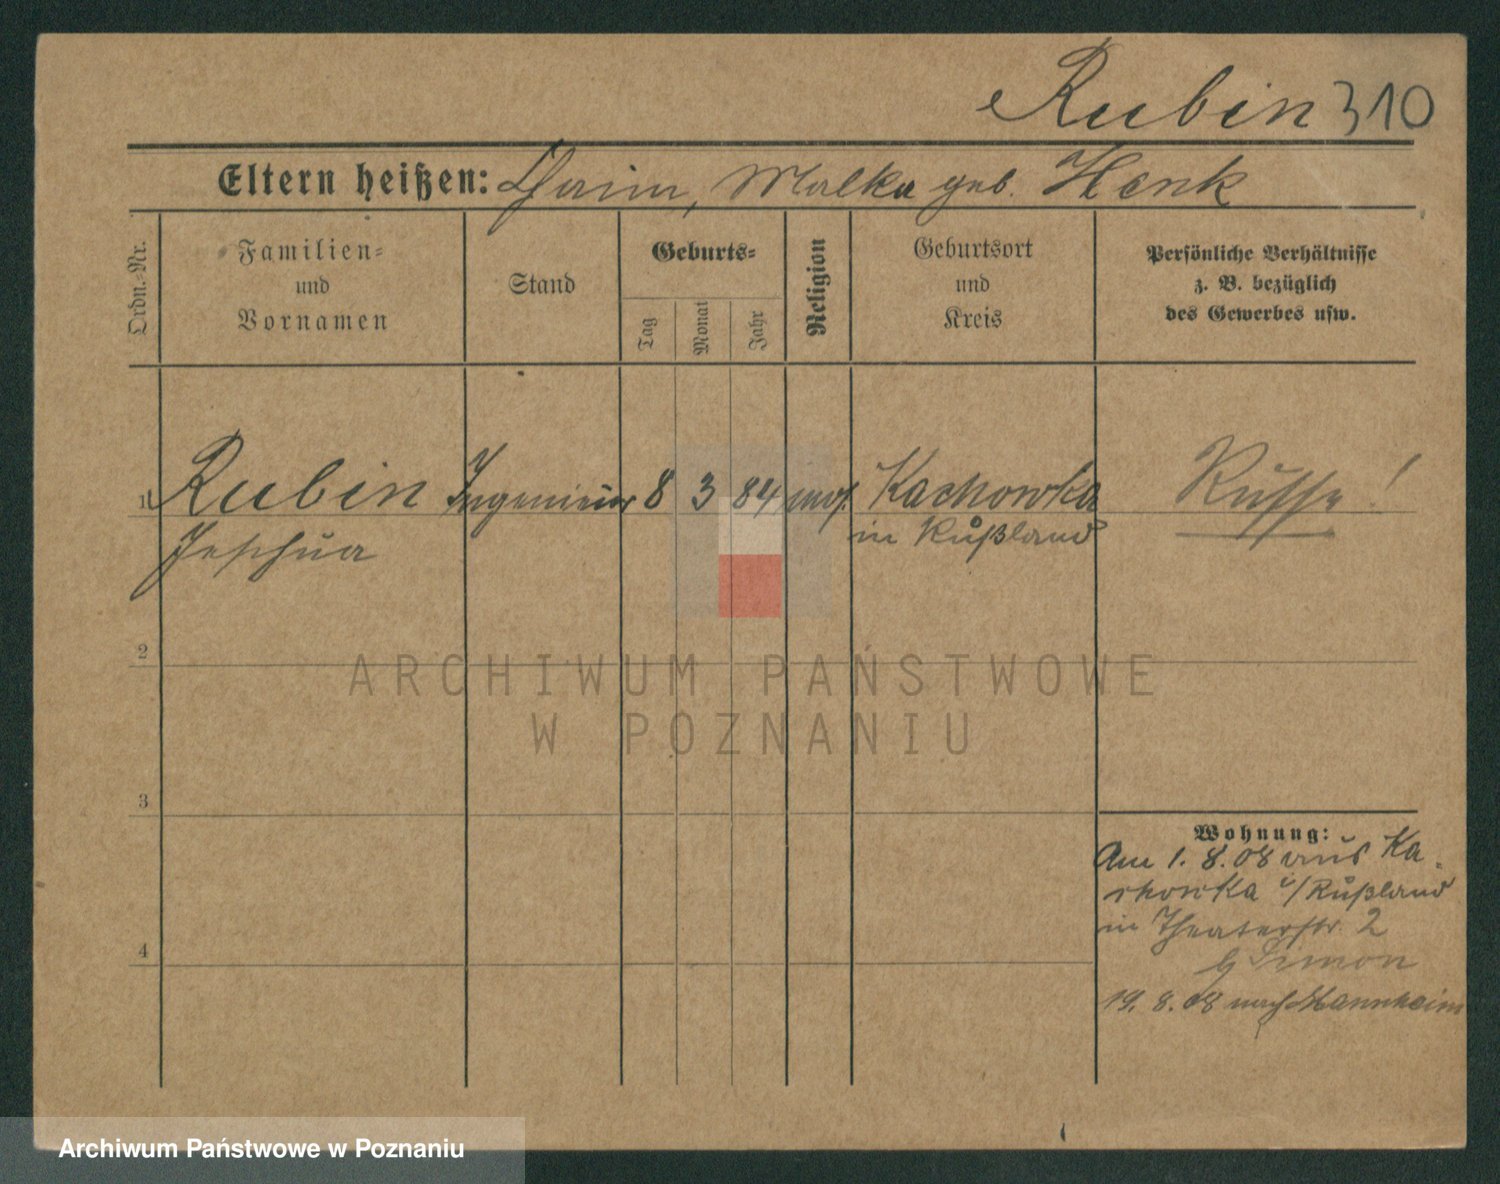 Rubin 310
Eltern heißen: Chaim, Malka geb. Henk
Ordn.-Nr.
Familien-
und
Vornamen
Stand
Geburts-
Tag
Monat
Jahr
Religion
Geburtsort
und
Kreis
Persönliche Verhältnisse
z. B. bezüglich
des Gewerbes usw.
1 Rubin Ingenieur 8 3 84 mos. Kachowka Russe!
Jeschua in Rußland
2
ARCHIWUM PAŃSTWOWE
W POZNANIU
3
Wohnung:
Am 1. 8. 08 aus Ka-
chowka i/Rußland
in Theaterstr. 2
b/ Simon
4
19. 8. 08 nach Mannheim
Archiwum Państwowe w Poznaniu